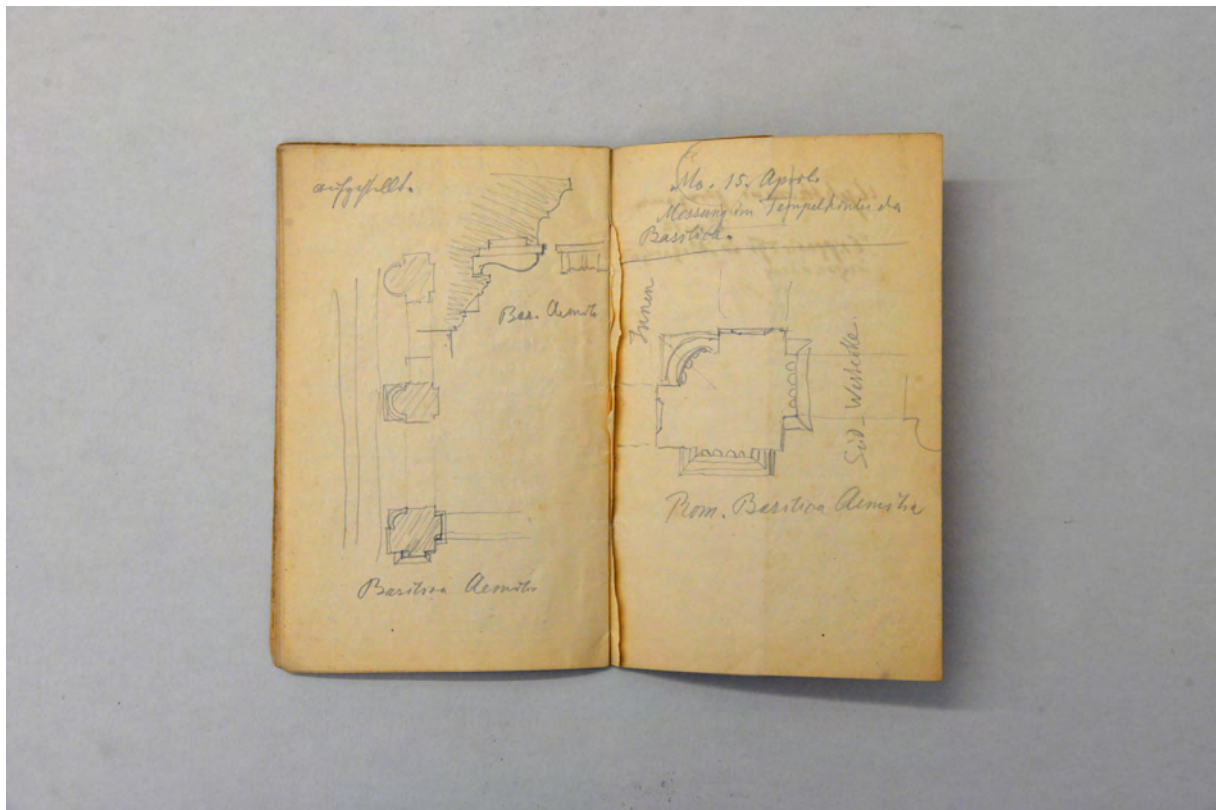 aufgestellt.
Bas. Aemilia
Basilica Aemilia
Mo. 15. April.
Messung im Tempel der
Basilica.
Innen
Süd-Westecke.
Rom. Basilica Aemilia